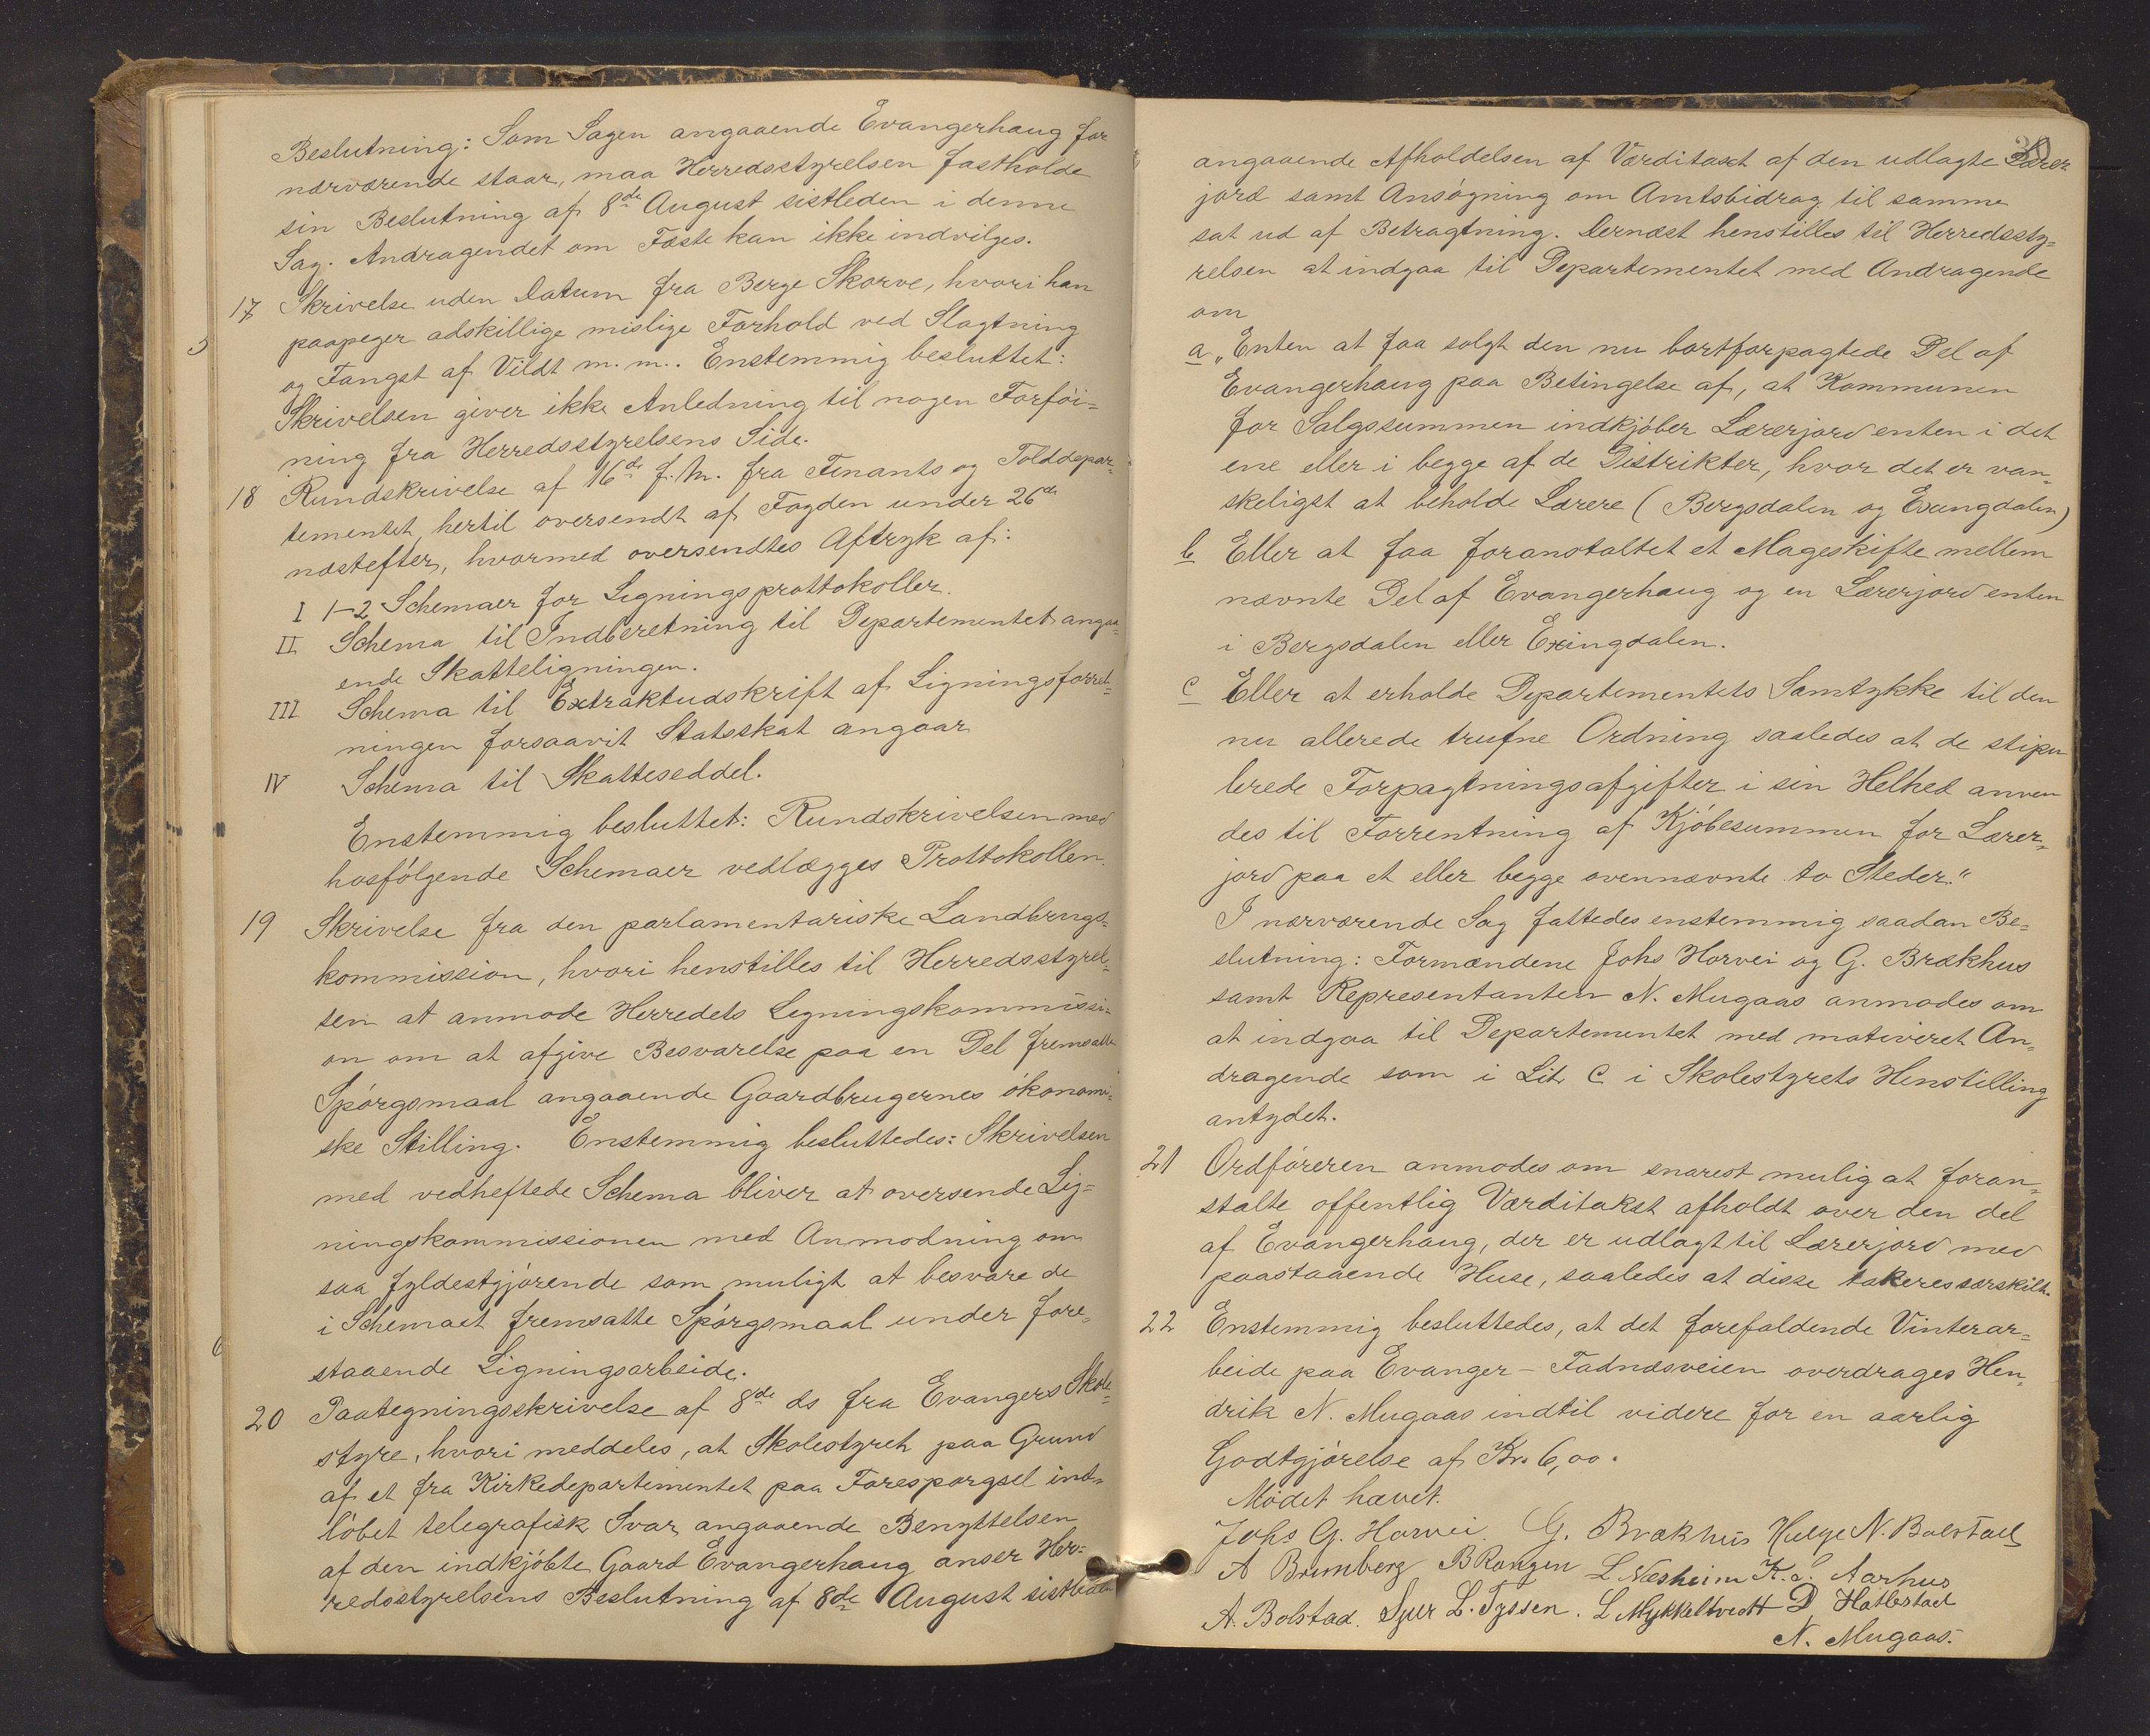 Beslutning: Som Sagen angaaende Evangerhaug for
nærværende staar, maa Herredsstyrelsen fastholde
sin Beslutning af 8de August sistleden i denne
Sag. Andragendet om Fæste kan ikke indvilges.
17 Skrivelse uden Datum fra Berge Skorve, hvori han
paapeger adskillige mislige Forhold ved Slagtning
og Fangst af Vildt m. m.. Enstemmig besluttet:
Skrivelsen giver ikke Anledning til nogen Forföi=
ning fra Herredsstyrelsens Side.
18 Rundskrivelse af 16de f. M. fra Finants og Tolddepar=
tementet hertil oversendt af Fogden under 26de
næstefter, hvormed oversendtes Aftryk af:
I 1-2 Schemaer for Ligningsprottokoller.
II Schema til Indberetning til Departementet angaa=
ende Skatteligningen.
III Schema til Extraktudskrift af Ligningsforret=
ningen forsaavit Statsskat angaar
IV Schema til Skatteseddel.
Enstemmig besluttet: Rundskrivelsen med
hosfölgende Schemaer vedlægges Prottokollen.
19 Skrivelse fra den parlamentariske Landbrugs=
kommission, hvori henstilles til Herredsstyrel=
sen at anmode Herredets Ligningskommissi=
on om at afgive Besvarelse paa en Del fremsatte
Spörgsmaal angaaende Gaardbrugernes ökonomi=
ske Stilling. Enstemmig besluttedes: Skrivelsen
med vedheftede Schema bliver at oversende Lig=
ningskommissionen med Anmodning om
saa fyldestgjörende som muligt at besvare de
i Schemaet fremsatte Spörgsmaal under fore=
staaende Ligningsarbeide.
20 Paategningsskrivelse af 8de ds fra Evangers Skole=
styre, hvori meddeles, at Skolestyret paa Grund
af et fra Kirkedepartementet paa Forespörgsel ind=
löbet telegrafisk Svar angaaende Benyttelsen
af den indkjöbte Gaard Evangerhaug anser Her=
redsstyrelsens Beslutning af 8de August sistleden
30
angaaende Afholdelsen af Værditaxt af den udlagte Lærer=
jord samt Ansögning om Amtsbidrag til samme
sat ud af Betragtning. Dernæst henstilles til Herredssty=
relsen at indgaa til Departementet med Andragende
om
a „Enten at faa solgt den nu bortforpagtede Del af
Evangerhaug paa Betingelse af, at Kommunen
for Salgssummen indkjöber Lærerjord enten i det
ene eller i begge af de Distrikter, hvor det er van=
skeligst at beholde Lærere (Bergsdalen og Exingdalen)
b Eller at faa foranstaltet et Mageskifte mellem
nævnte Del af Evangerhaug og en Lærerjord enten
i Bergsdalen eller Exingdalen.
c Eller at erholde Departementets Samtykke til den
nu allerede trufne Ordning saaledes at de stipu
lerede Forpagtningsafgifter i sin Helhed anven
des til Forrentning af Kjöbesummen for Lærer=
jord paa et eller begge ovennævnte to Steder."
I nærværende Sag fattedes enstemmig saadan Be=
slutning: Formændene Johs Horvei og G. Brækhus
samt Representanten N. Mugaas anmodes om
at indgaa til Departementet med motiveret An=
dragende som i Lit. C i Skolestyrets Henstilling
antydet.
21 Ordföreren anmodes om snarest mulig at foran=
stalte offentlig Værditakst afholdt over den del
af Evangerhaug, der er udlagt til Lærerjord med
paastaaende Huse, saaledes at disse takeres særskilt.
22 Enstemmig besluttedes, at det forefaldende Vinterar=
beide paa Evanger - Fadnæsveien overdrages Hen=
drik N. Mugaas indtil videre for en aarlig
Godtgjörelse af Kr. 6,00.
Mödet hævet.
Johs G. Horvei. G. Brækhus Helge N. Bolstad
A Brunborg B Rongen L Næsheim K. L. Aarhus
A. Bolstad. Sjur L. Tyssen. L Mykkeltvedt D Hatlestad
N. Mugaas.